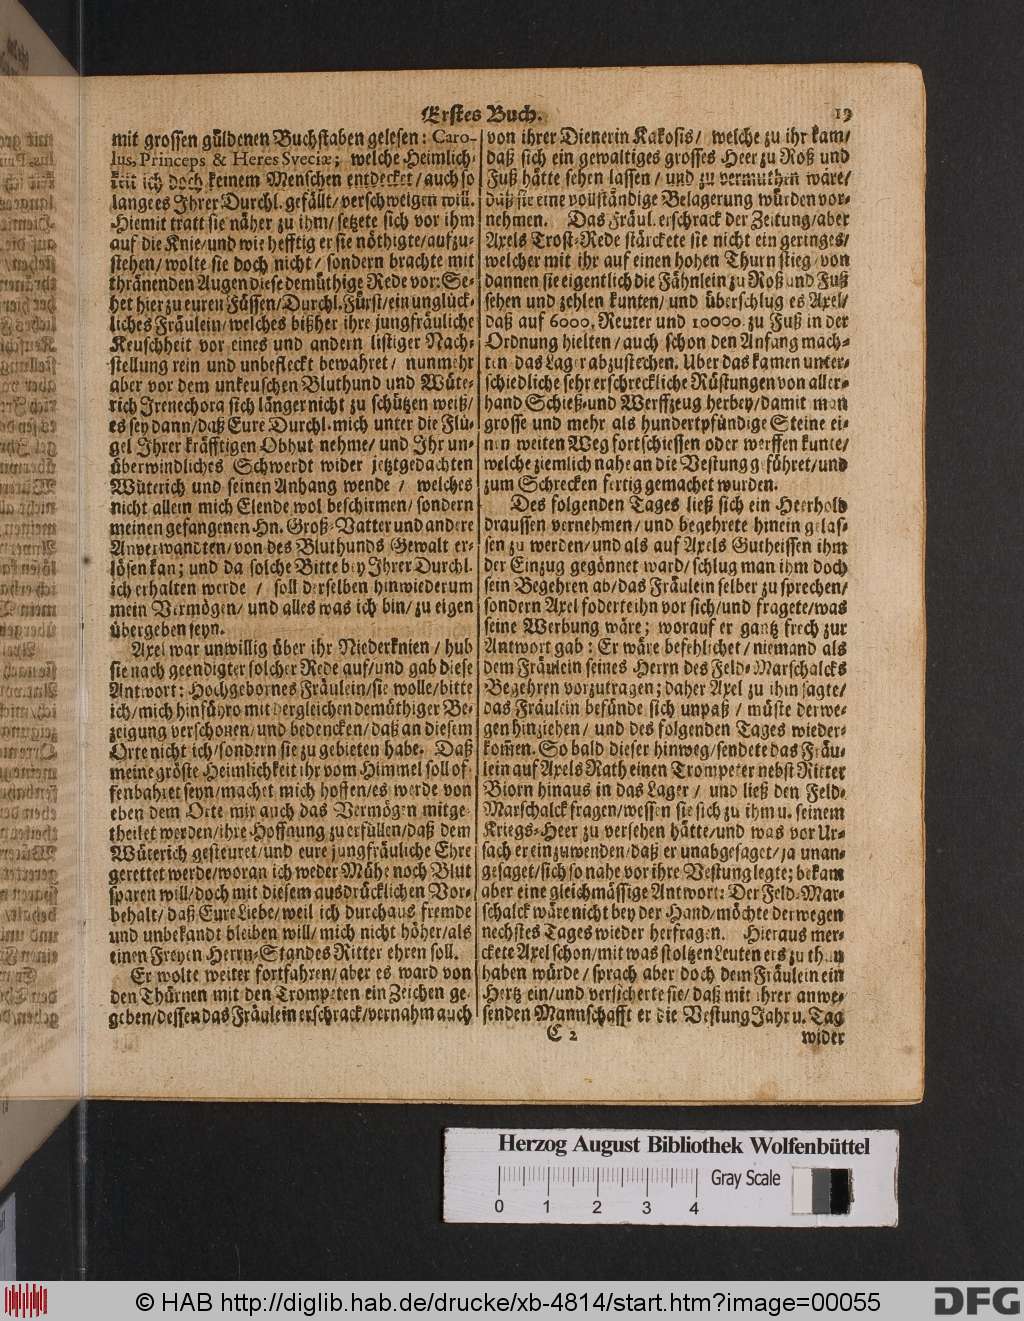 Erstes Buch. 19
mit grossen güldenen Buchstaben gelesen: Caro-
lus, Princeps & Heres Sveciæ; welche Heimlich-
keit ich doch keinem Menschen entdecket/ auch so
lange es Ihrer Durchl. gefällt/ verschweigen will.
Hiemit tratt sie näher zu ihm/ setzete sich vor ihm
auf die Knie/ und wie hefftig er sie nöthigte/ aufzu-
stehen/ wolte sie doch nicht/ sondern brachte mit
thränenden Augen diese demüthige Rede vor: Se-
het hier zu euren Füssen/ Durchl. Fürst/ ein unglück-
liches Fräulein/ welches bißher ihre jungfräuliche
Keuschheit vor eines und andern listiger Nach-
stellung rein und unbefleckt bewahret/ nunmehr
aber vor dem unkeuschen Bluthund und Wüte-
rich Irenechora sich länger nicht zu schützen weiß/
es sey dann/ daß Eure Durchl. mich unter die Flü-
gel Ihrer kräfftigen Obhut nehme/ und Ihr un-
überwindliches Schwerdt wider jetztgedachten
Wüterich und seinen Anhang wende/ welches
nicht allein mich Elende wol beschirmen/ sondern
meinen gefangenen Hn. Groß-Vatter und andere
Anverwandten/ von des Bluthunds Gewalt er-
lösen kan; und da solche Bitte bey Ihrer Durchl.
ich erhalten werde/ soll derselben hinwiederum
mein Vermögen/ und alles was ich bin/ zu eigen
übergeben seyn.
Axel war unwillig über ihr Niederknien/ hub
sie nach geendigter solcher Rede auf/ und gab diese
Antwort: Hochgebornes Fräulein/ sie wolle/ bitte
ich/ mich hinführo mit dergleichen demüthiger Be-
zeigung verschonen/ und bedencken/ daß an diesem
Orte nicht ich/ sondern sie zu gebieten habe. Daß
meine gröste Heimlichkeit ihr vom Himmel soll of-
fenbahret seyn/ machet mich hoffen/ es werde von
eben dem Orte mir auch das Vermögen mitge-
theilet werden/ ihre Hoffnung zu erfüllen/ daß dem
Wüterich gesteuret/ und eure jungfräuliche Ehre
gerettet werde/ woran ich weder Mühe noch Blut
sparen will/ doch mit diesem ausdrücklichen Vor-
behalt/ daß Eure Liebe/ weil ich durchaus fremde
und unbekandt bleiben will/ mich nicht höher/ als
einen Freyen Herrn-Standes Ritter ehren soll.
Er wolte weiter fortfahren/ aber es ward von
den Thürnen mit den Trompeten ein Zeichen ge-
geben/ dessen das Fräulein erschrack/ vernahm auch
von ihrer Dienerin Kakosis/ welche zu ihr kam/
daß sich ein gewaltiges grosses Heer zu Roß und
Fuß hätte sehen lassen/ und zu vermuthen wäre/
daß sie eine vollständige Belagerung würden vor-
nehmen. Das Fräul. erschrack der Zeitung/ aber
Axels Trost-Rede stärckete sie nicht ein geringes/
welcher mit ihr auf einen hohen Thurn stieg/ von
dannen sie eigentlich die Fähnlein zu Roß und Fuß
sehen und zehlen kunten/ und überschlug es Axel/
daß auf 6000. Reuter und 10000. zu Fuß in der
Ordnung hielten/ auch schon den Anfang mach-
ten das Lager abzustechen. Uber das kamen unter-
schiedliche sehr erschreckliche Rüstungen von aller-
hand Schieß- und Werffzeug herbey/ damit man
grosse und mehr als hundertpfündige Steine ei-
nen weiten Weg fortschiessen oder werffen kunte/
welche ziemlich nahe an die Vestung geführet/ und
zum Schrecken fertig gemachet wurden.
Des folgenden Tages ließ sich ein Heerhold
draussen vernehmen/ und begehrete hinein gelas-
sen zu werden/ und als auf Axels Gutheissen ihm
der Einzug gegönnet ward/ schlug man ihm doch
sein Begehren ab/ das Fräulein selber zu sprechen/
sondern Axel foderte ihn vor sich/ und fragete/ was
seine Werbung wäre; worauf er gantz frech zur
Antwort gab: Er wäre befehlichet/ niemand als
dem Fräulein seines Herrn des Feld-Marschalcks
Begehren vorzutragen; daher Axel zu ihm sagte/
das Fräulein befünde sich unpaß/ müste derwe-
gen hinziehen/ und des folgenden Tages wieder-
kom̃en. So bald dieser hinweg/ sendete das Fräu-
lein auf Axels Rath einen Trompeter nebst Ritter
Biorn hinaus in das Lager/ und ließ den Feld-
Marschalck fragen/ wessen sie sich zu ihm u. seinem
Kriegs-Heer zu versehen hätte/ und was vor Ur-
sach er einzuwenden/ daß er unabgesaget/ ja unan-
gesaget/ sich so nahe vor ihre Vestung legte; bekam
aber eine gleichmässige Antwort: Der Feld-Mar-
schalck wäre nicht bey der Hand/ möchte derwegen
nechstes Tages wieder herfragen. Hieraus mer-
ckete Axel schon/ mit was stoltzen Leuten ers zu thun
haben würde/ sprach aber doch dem Fräulein ein
Hertz ein/ und versicherte sie/ daß mit ihrer anwe-
senden Mannschafft er die Vestung Jahr u. Tag
C 2 wider
Herzog August Bibliothek Wolfenbüttel
Gray Scale
0 1 2 3 4
© HAB http://diglib.hab.de/drucke/xb-4814/start.htm?image=00055 DFG